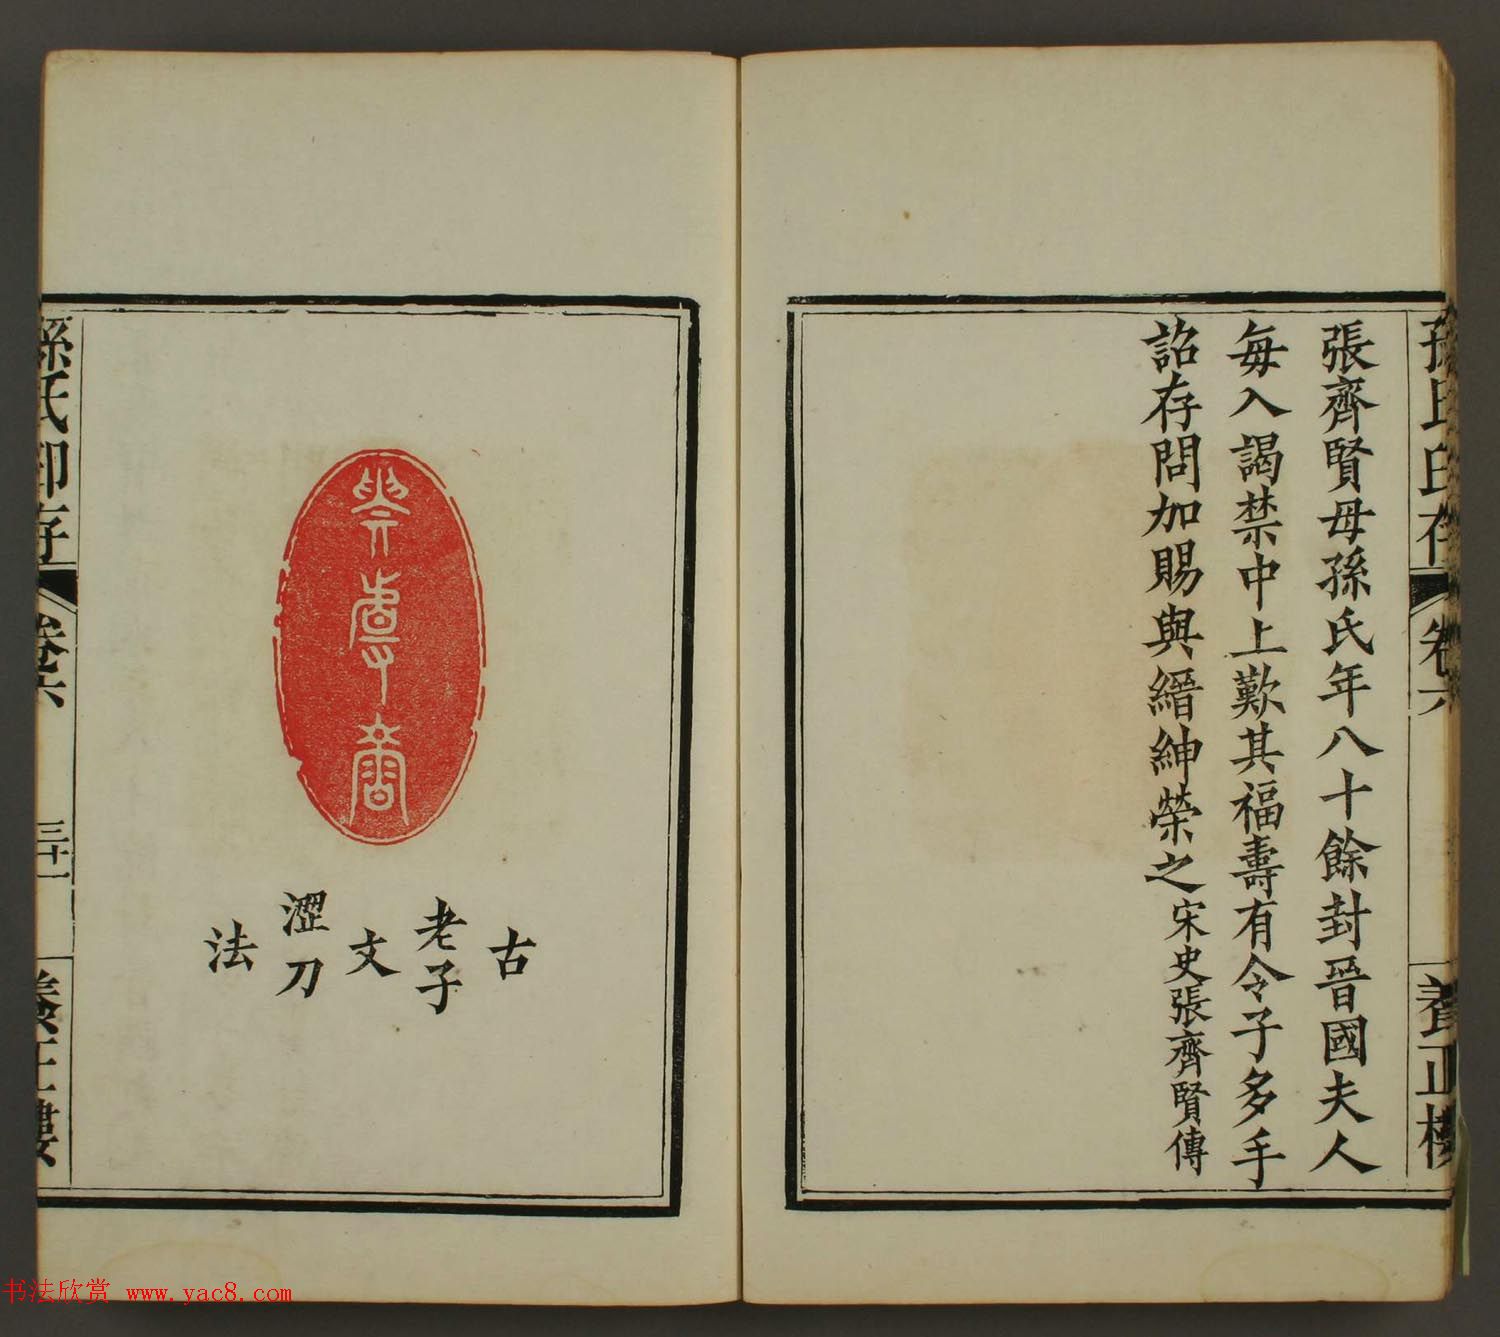 孫氏印存
卷六
養正樓
張齊賢母孫氏年八十餘封晉國夫人
每入謁禁中上歎其福壽有令子多手
詔存問加賜與縉紳榮之宋史張齊賢傳
古
老子
文
澀刀
法
孫氏印存
卷六
三十一
養正樓
书法欣赏 www.yac8.com